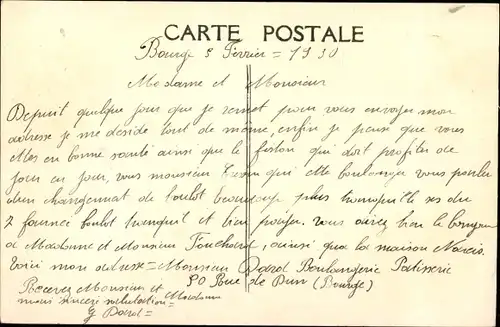 CARTE POSTALE
Bourge 5 Fevrier = 1930
Madame et Monsieur
Depuit quelque jour que je remet pour vous envoyer mon
adresse je me déside tout de même, enfin je pense que vous
etes en bonne santé ainsi que le fiston qui doit profiter de
jour en jour, vous monsieur qui ette boulanger vous parler
d'un changement de boulot beaucoup plus tranquille ses du
2 fournée boulot tranquil et bien payer. Vous direz bien le bonjour
a Madame et Monsieur Fouchard, ainsi que la maison
Voici mon adresse = Monsieur Darol Boulangerie Patisserie
50 Rue de Dun (Bourge)
Recevez Monsieur et Madame
mais sincere salutation =
G Darol =